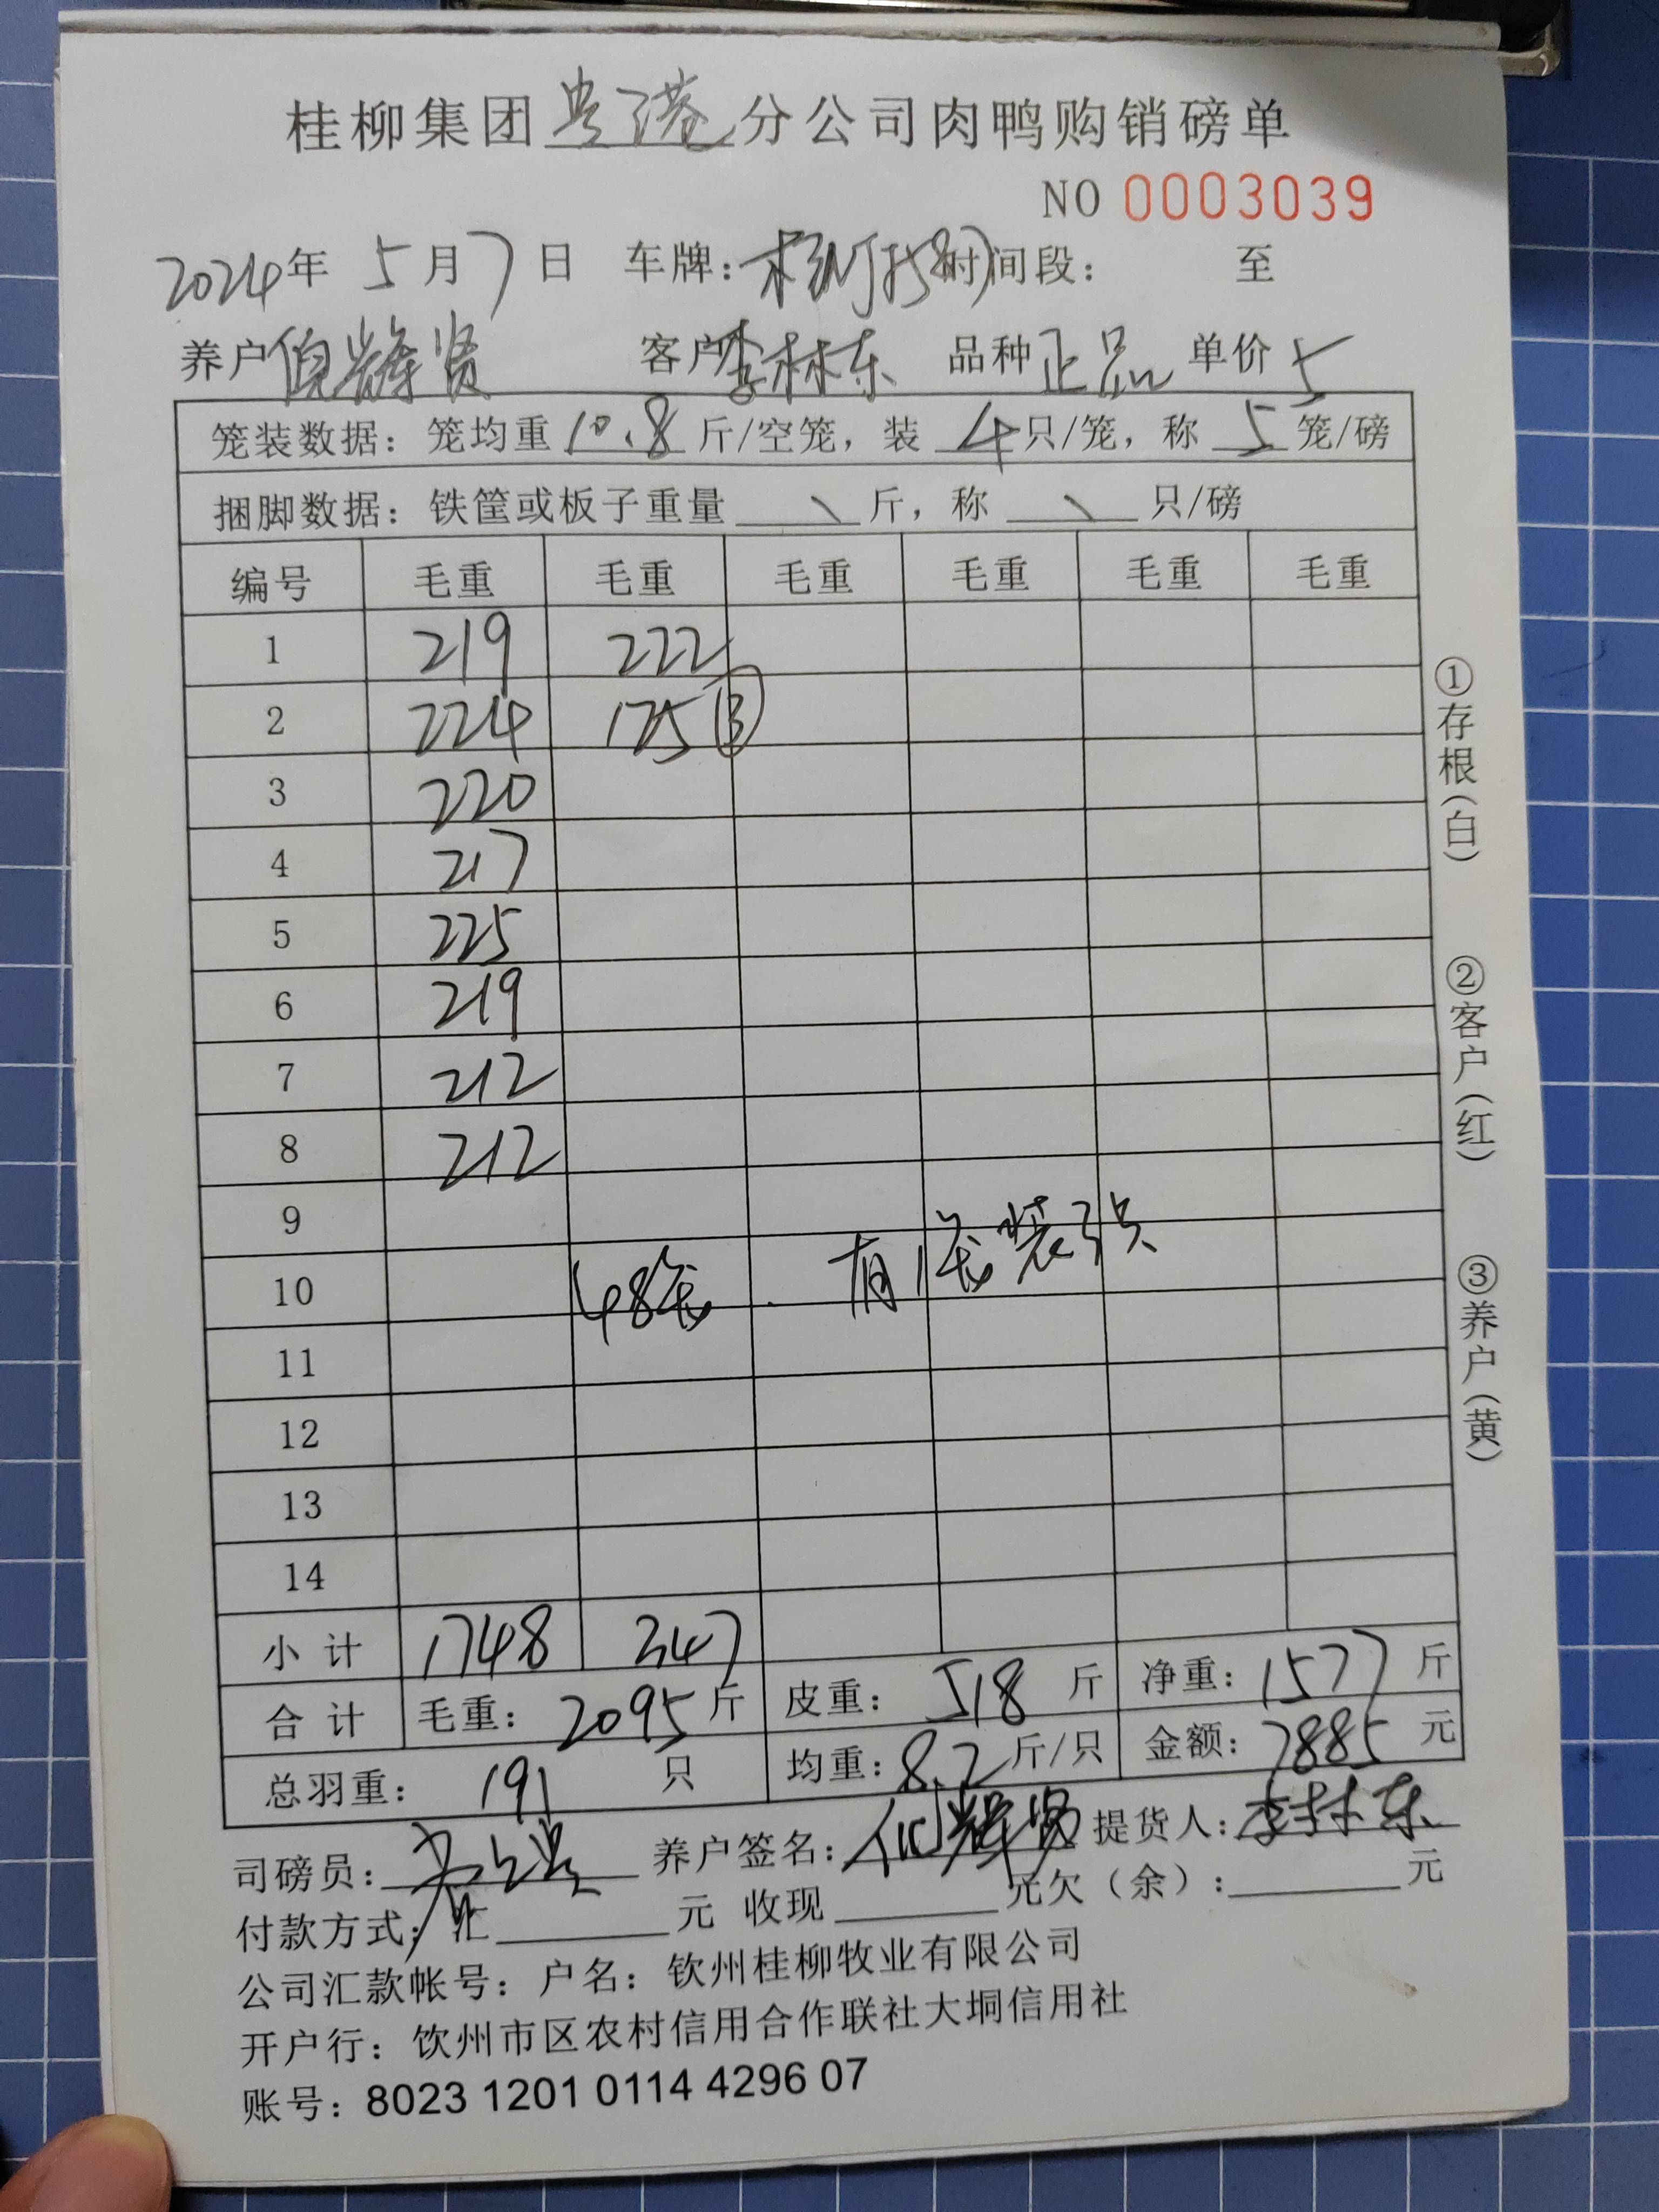 桂柳集团贵港分公司肉鸭购销磅单
NO 0003039
2024年 5月7日 车牌: 时间段: 至
养户 客户李林东 品种正品 单价5
笼装数据: 笼均重10.8斤/空笼, 装4只/笼, 称5笼/磅
捆脚数据: 铁筐或板子重量 \ 斤, 称 \ 只/磅
编号 毛重 毛重 毛重 毛重 毛重 毛重
1 219 222
2 224 125 ③
3 220
4 217
5 225
6 219
7 212
8 212
9
10 48笼. 有1笼装3只
11
12
13
14
小计 1748 347
合计 毛重: 2095斤 皮重: 518斤 净重: 1577斤
总羽重: 191只 均重: 8.2斤/只 金额: 7885元
司磅员: 养户签名: 提货人: 李林东
付款方式: 汇 元 收现 元欠(余): 元
公司汇款帐号: 户名: 钦州桂柳牧业有限公司
开户行: 钦州市区农村信用合作联社大垌信用社
账号: 8023 1201 0114 4296 07
①存根(白)
②客户(红)
③养户(黄)